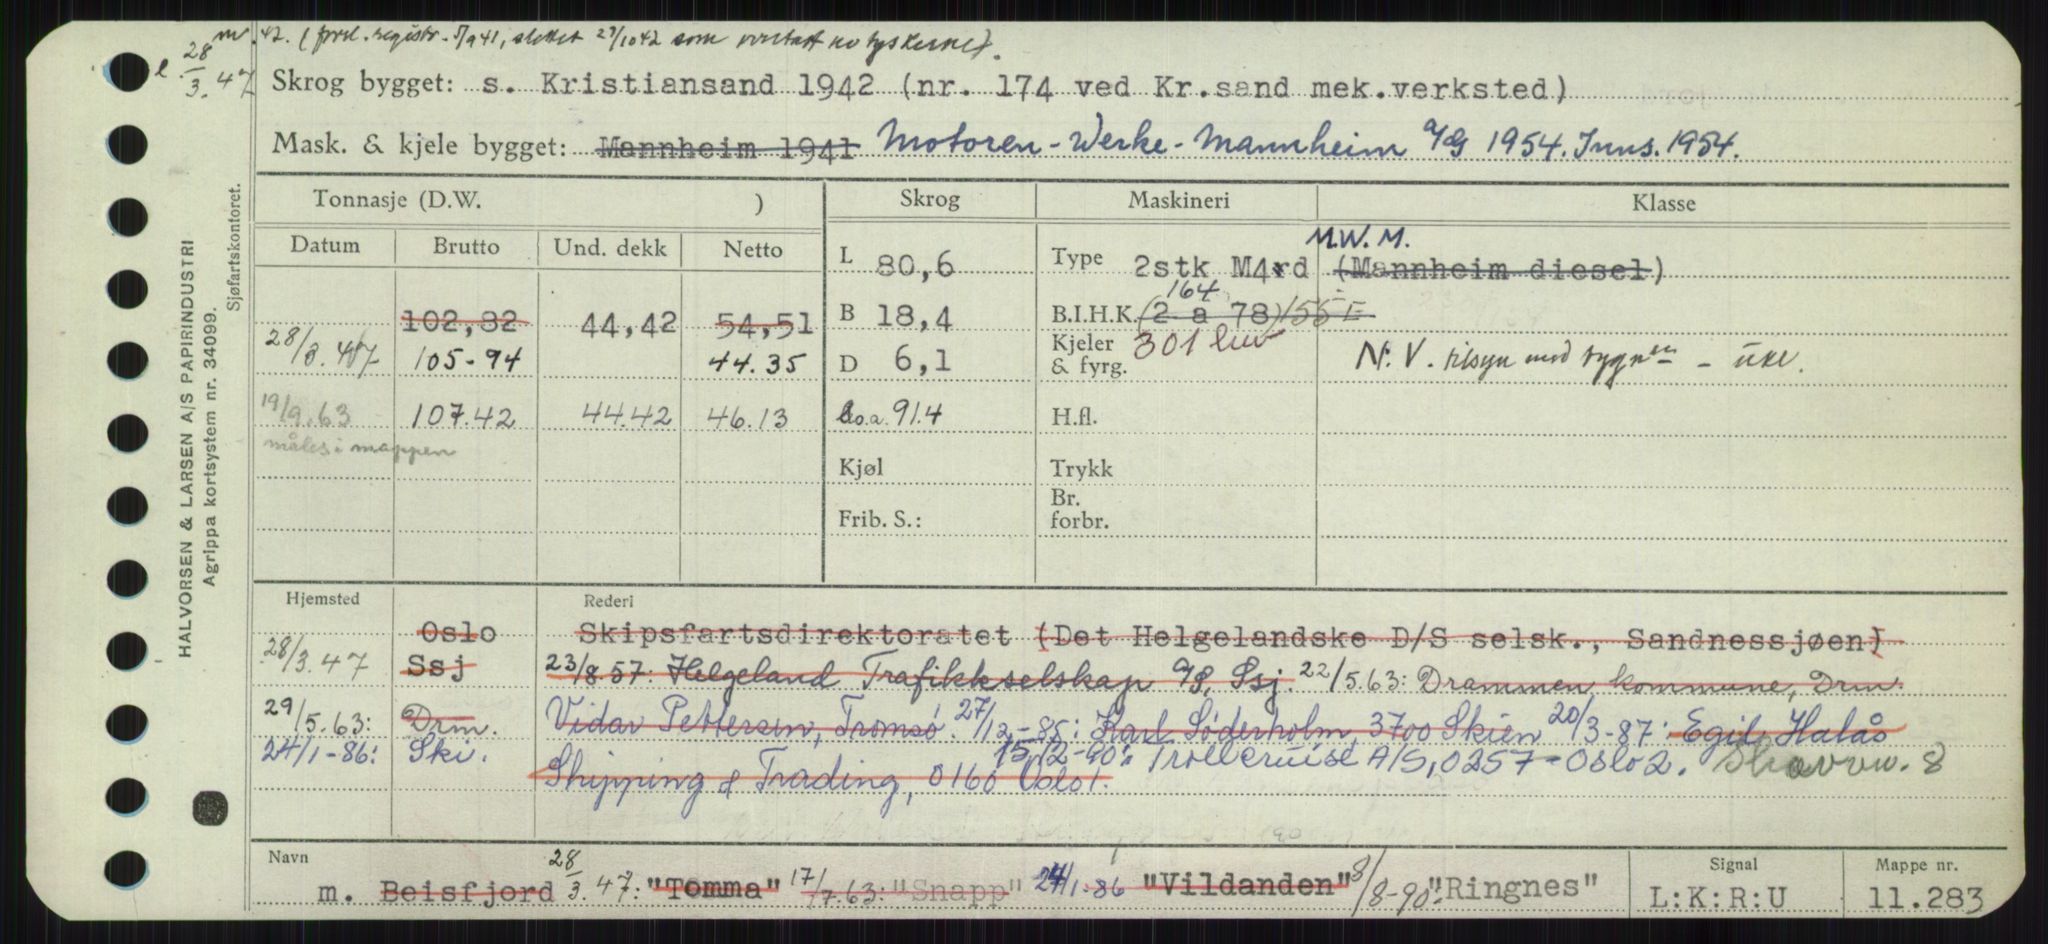 nr. 42. (forel. registr. 5/9 41, slettet 23/10 42 som overtatt av tyskerne).
28/3.47
Skrog bygget: s. Kristiansand 1942 (nr. 174 ved Kr.sand mek.verksted)
Mask. & kjele bygget: Mannheim 1941 Motoren-Werke-Mannheim A/G 1954. Inns. 1954.
Tonnasje (D.W. ) Skrog Maskineri Klasse
Datum Brutto Und. dekk Netto
M.W.M.
L 80,6 Type 2stk M4rd (Mannheim diesel)
164
102,82 44,42 54,51 B 18,4 B.I.H.K. (2 a 78)/55 E
28/3.47 105-94 44.35 D 6,1 Kjeler & fyrg. 301 N. V. tilsyn med - uke.
19/9.63 107.42 44.42 46.13 L.o.a. 91.4 H.fl.
måles i mappen
Kjøl Trykk
Frib. S.: Br. forbr.
Hjemsted Rederi
Oslo Skipsfartsdirektoratet (Det Helgelandske D/S selsk., Sandnessjøen)
28/3.47 Ssj 23/8 57: Helgeland Trafikkselskap A/S, Ssj. 22/5.63: Drammen kommune, Drm.
29/5.63: Drm. Vidar Pettersen, Tromsø. 27/12-85: Karl Söderholm, 3700 Skien 20/3-87: Egil Halås
24/1-86: Ski. Shipping & Trading, 0160 Oslo 1. 15/2-90: Trollcruise A/S, 0257-Oslo 2. 8
Navn Signal Mappe nr.
m. Beisfjord 28/3.47: "Tomma" 17/7.63: "Snapp" 24/1-86 "Vildanden" 8/8-90: "Ringnes" L:K:R:U 11.283
HALVORSEN & LARSEN A/S PAPIRINDUSTRI
Agrippa kortsystem nr. 34099.
Sjøfartskontoret.